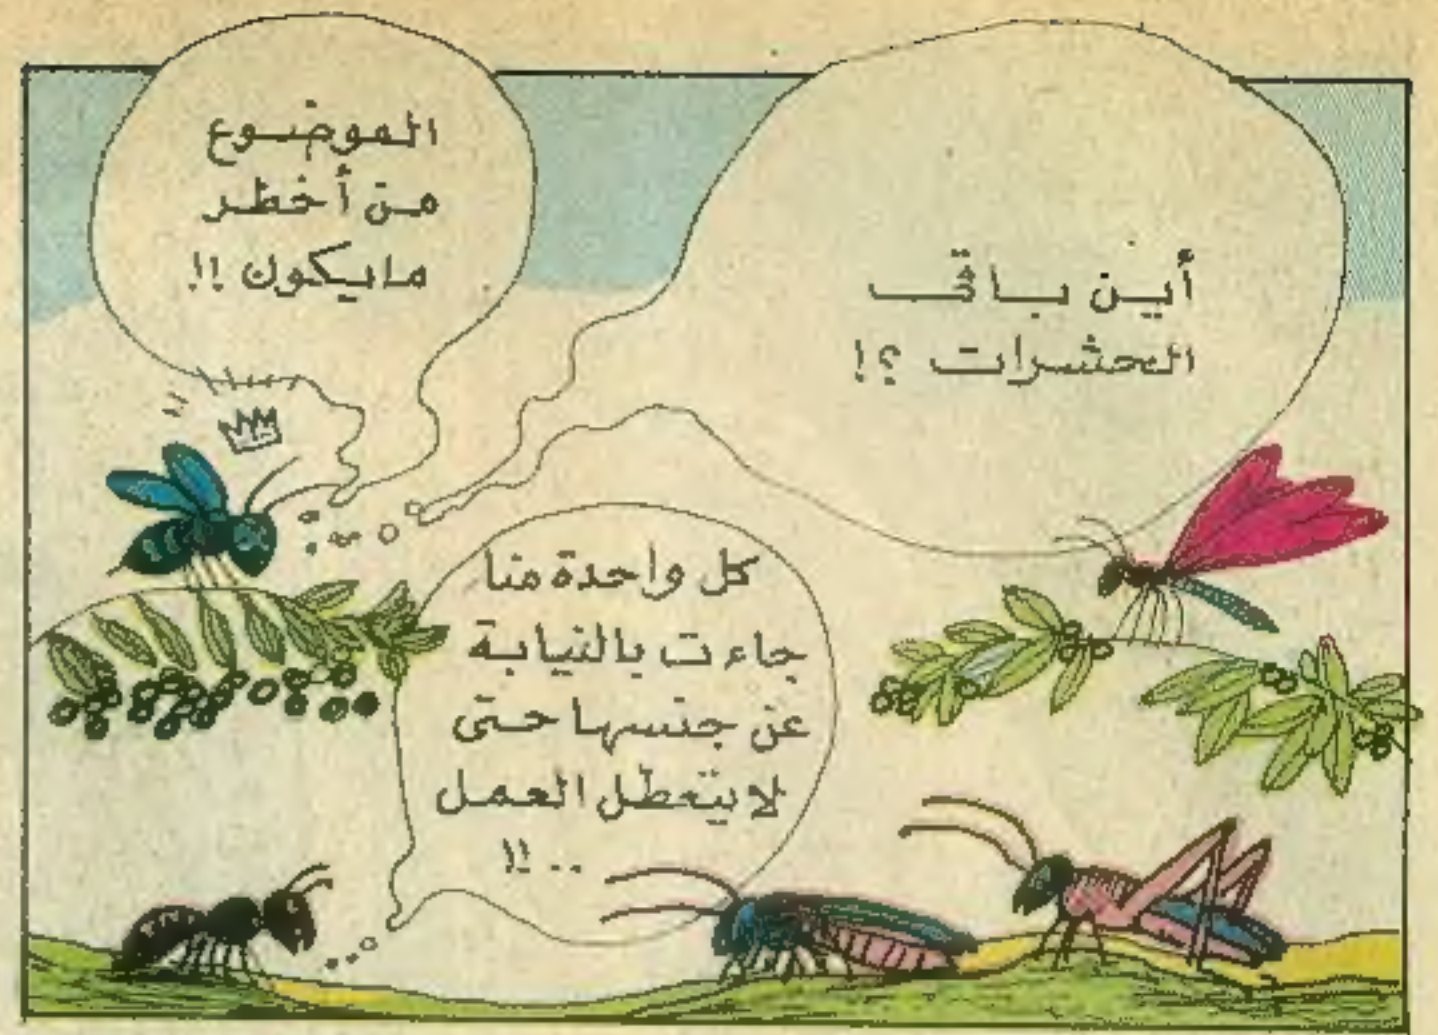 أين باقى
الحشرات ؟!
الموضوع
من أخطر
مايكون !!
كل واحدة منا
جاءت بالنيابة
عن جنسها حتى
لايتعطل العمل
.. !!